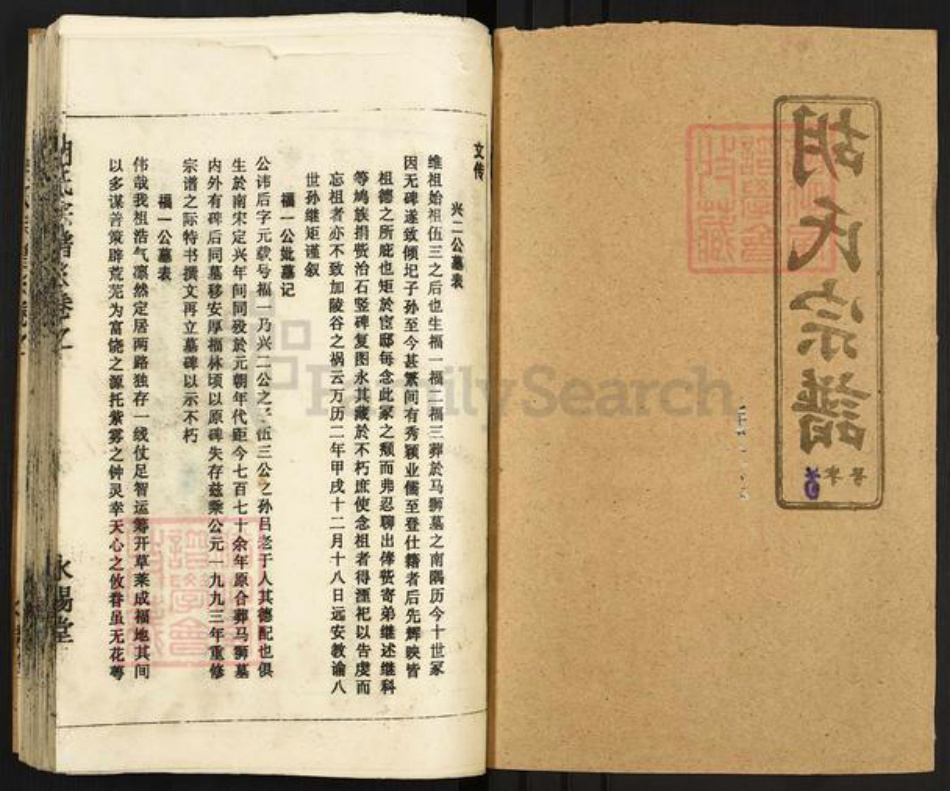 胡氏宗譜
文传
兴二公墓表
维祖始祖伍三之后也生福一福二福三葬於马狮墓之南隅历今十世冢
因无碑遂致倾圮子孙至今甚繁间有秀颖业儒至登仕籍者后先辉映皆
祖德之所庇也矩於宦邸每念此冢之颓而弗忍聊出俸赀寄弟继述继科
等鸠族捐赀治石竖碑复图永其藏於不朽庶使念祖者得湮祀以告虔而
忘祖者亦不致加陵谷之祸云万历二年甲戌十二月十八日远安教谕八
世孙继矩谨叙
福一公妣墓记
公讳后字元载号福一乃兴二公之子伍三公之孙吕老于人其德配也俱
生於南宋定兴年间同殁於元朝年代距今七百七十余年原合葬马狮墓
内外有碑后同墓移安厚福林顷以原碑失存兹乘公元一九九三年重修
宗谱之际特书撰文再立墓碑以示不朽
福一公墓表
伟哉我祖浩气凛然定居两路独存一线仗足智运筹开草莱成福地其间
以多谋善策辟荒芜为富饶之源托紫雾之钟灵幸天心之攸眷虽无花萼
FamilySearch